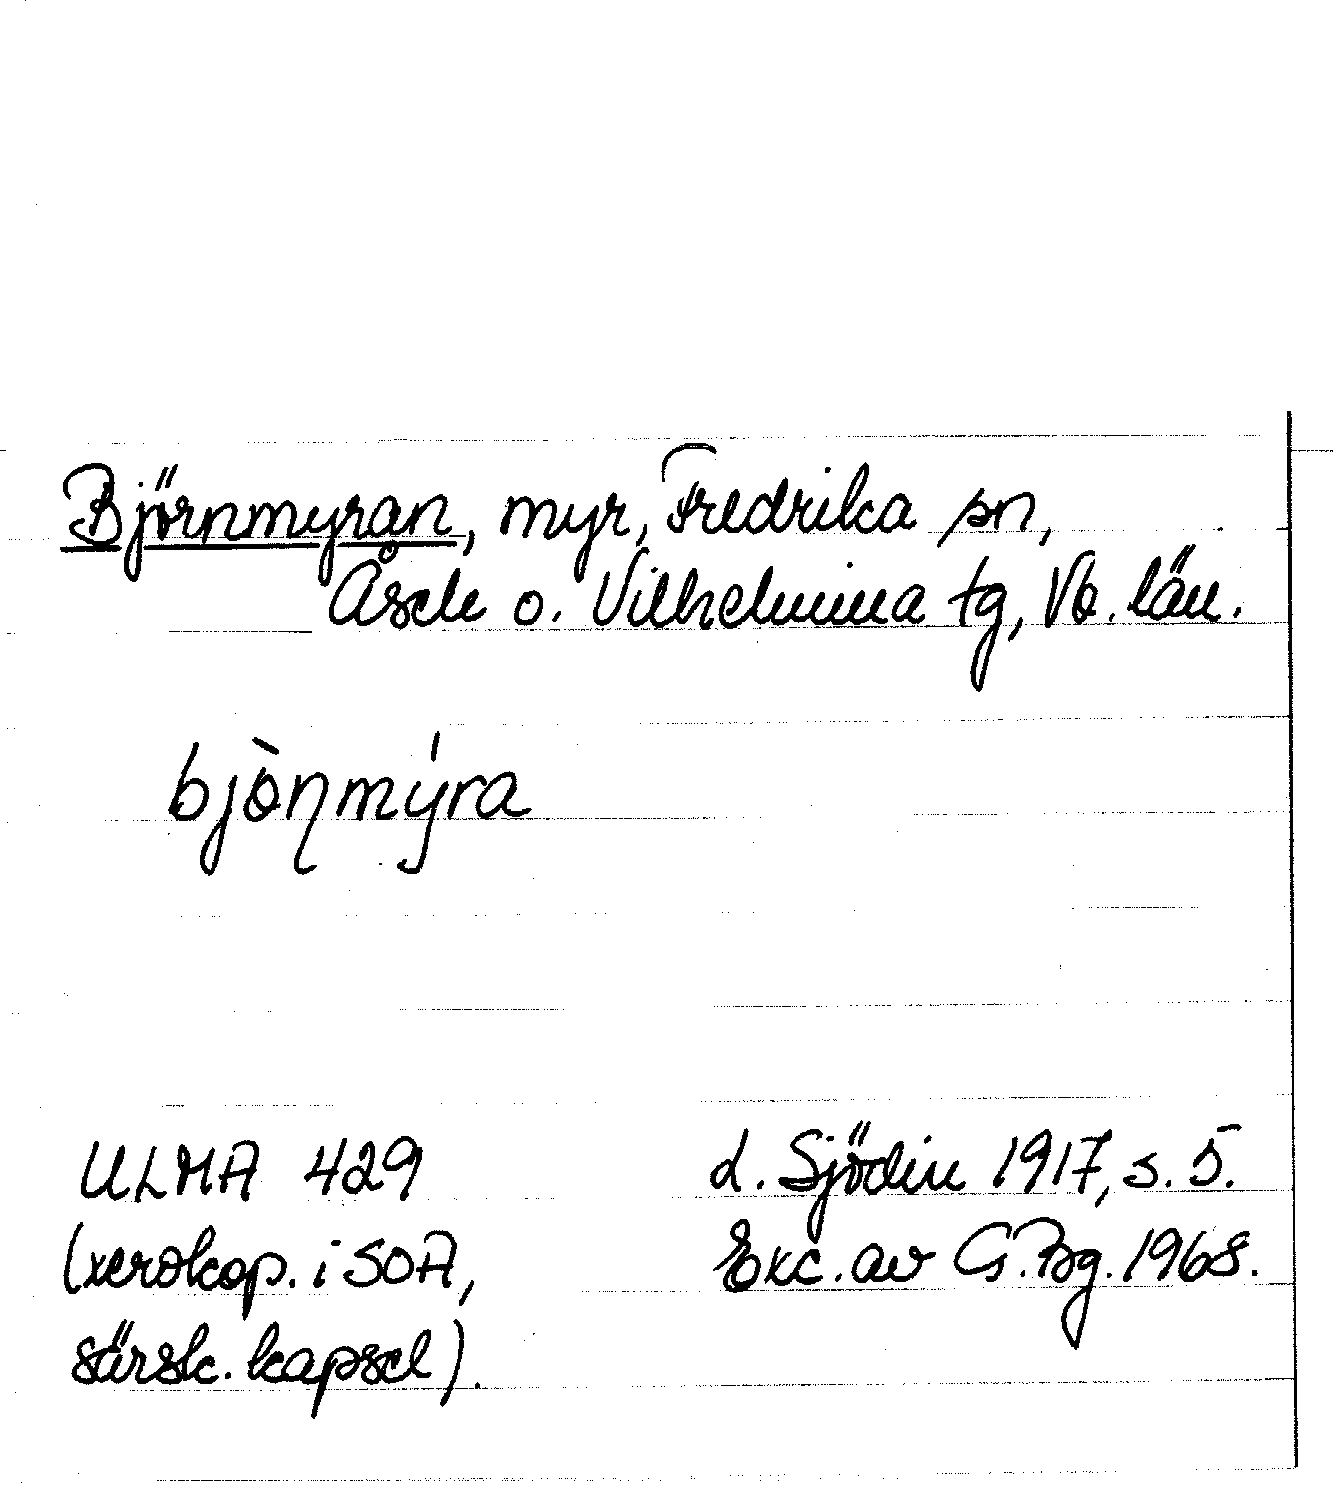 Björnmyran, myr, Fredrika sn,
Åsele o. Vilhelmina tg, Vb. län.
bjò̀ņmýra
ULMA 429
(xerokop. i SOA,
särsk. kapsel).
L. Sjödin 1917, s. 5.
Exc. av G. Bg. 1968.